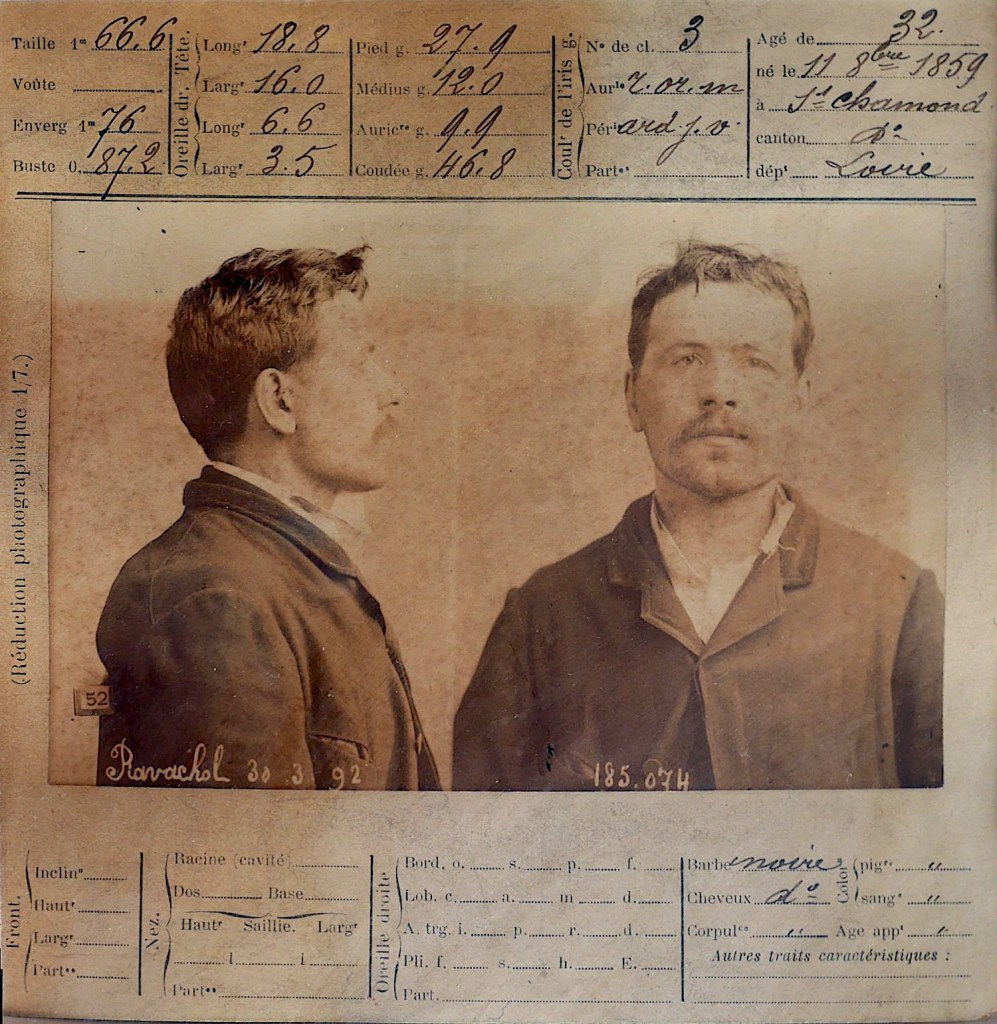 Taille 1ᵐ 66.6
Voûte
Enverg 1ᵐ 76
Buste 0, 87.2
Oreille dr. Tête.
Longʳ 18.8
Largʳ 16.0
Longʳ 6.6
Largʳ 3.5
Pied g. 27.9
Médius g. 12.0
Auricʳᵉ g. 9.9
Coudée g. 46.8
Coulʳ de l'iris g.
Nº de cl. 3
Aurˡᵉ r. or. m
Périᵉ ard. j. v.
Partˢ
Agé de 32.
né le 11 8bre 1859
à St chamond
canton dº
dépᵗ Loire
(Réduction photographique 1/7.)
52
Ravachol 30 3 92
185.074
Front.
Inclinⁿ
Hautʳ
Largʳ
Partˢ
Nez.
Racine (cavité)
Dos Base
Hautʳ Saillie. Largʳ
Partˢ
Oreille droite
Bord. o. s. p. f.
Lob. c. a. m d.
A. trg. i. p. r. d.
Pli. f. s. h. E.
Part.
Barbe noire
Cheveux dº
Corpulᶜᵉ "
Color
pigʳᵉ "
sangᵉ "
Age appᵗ "
Autres traits caractéristiques :